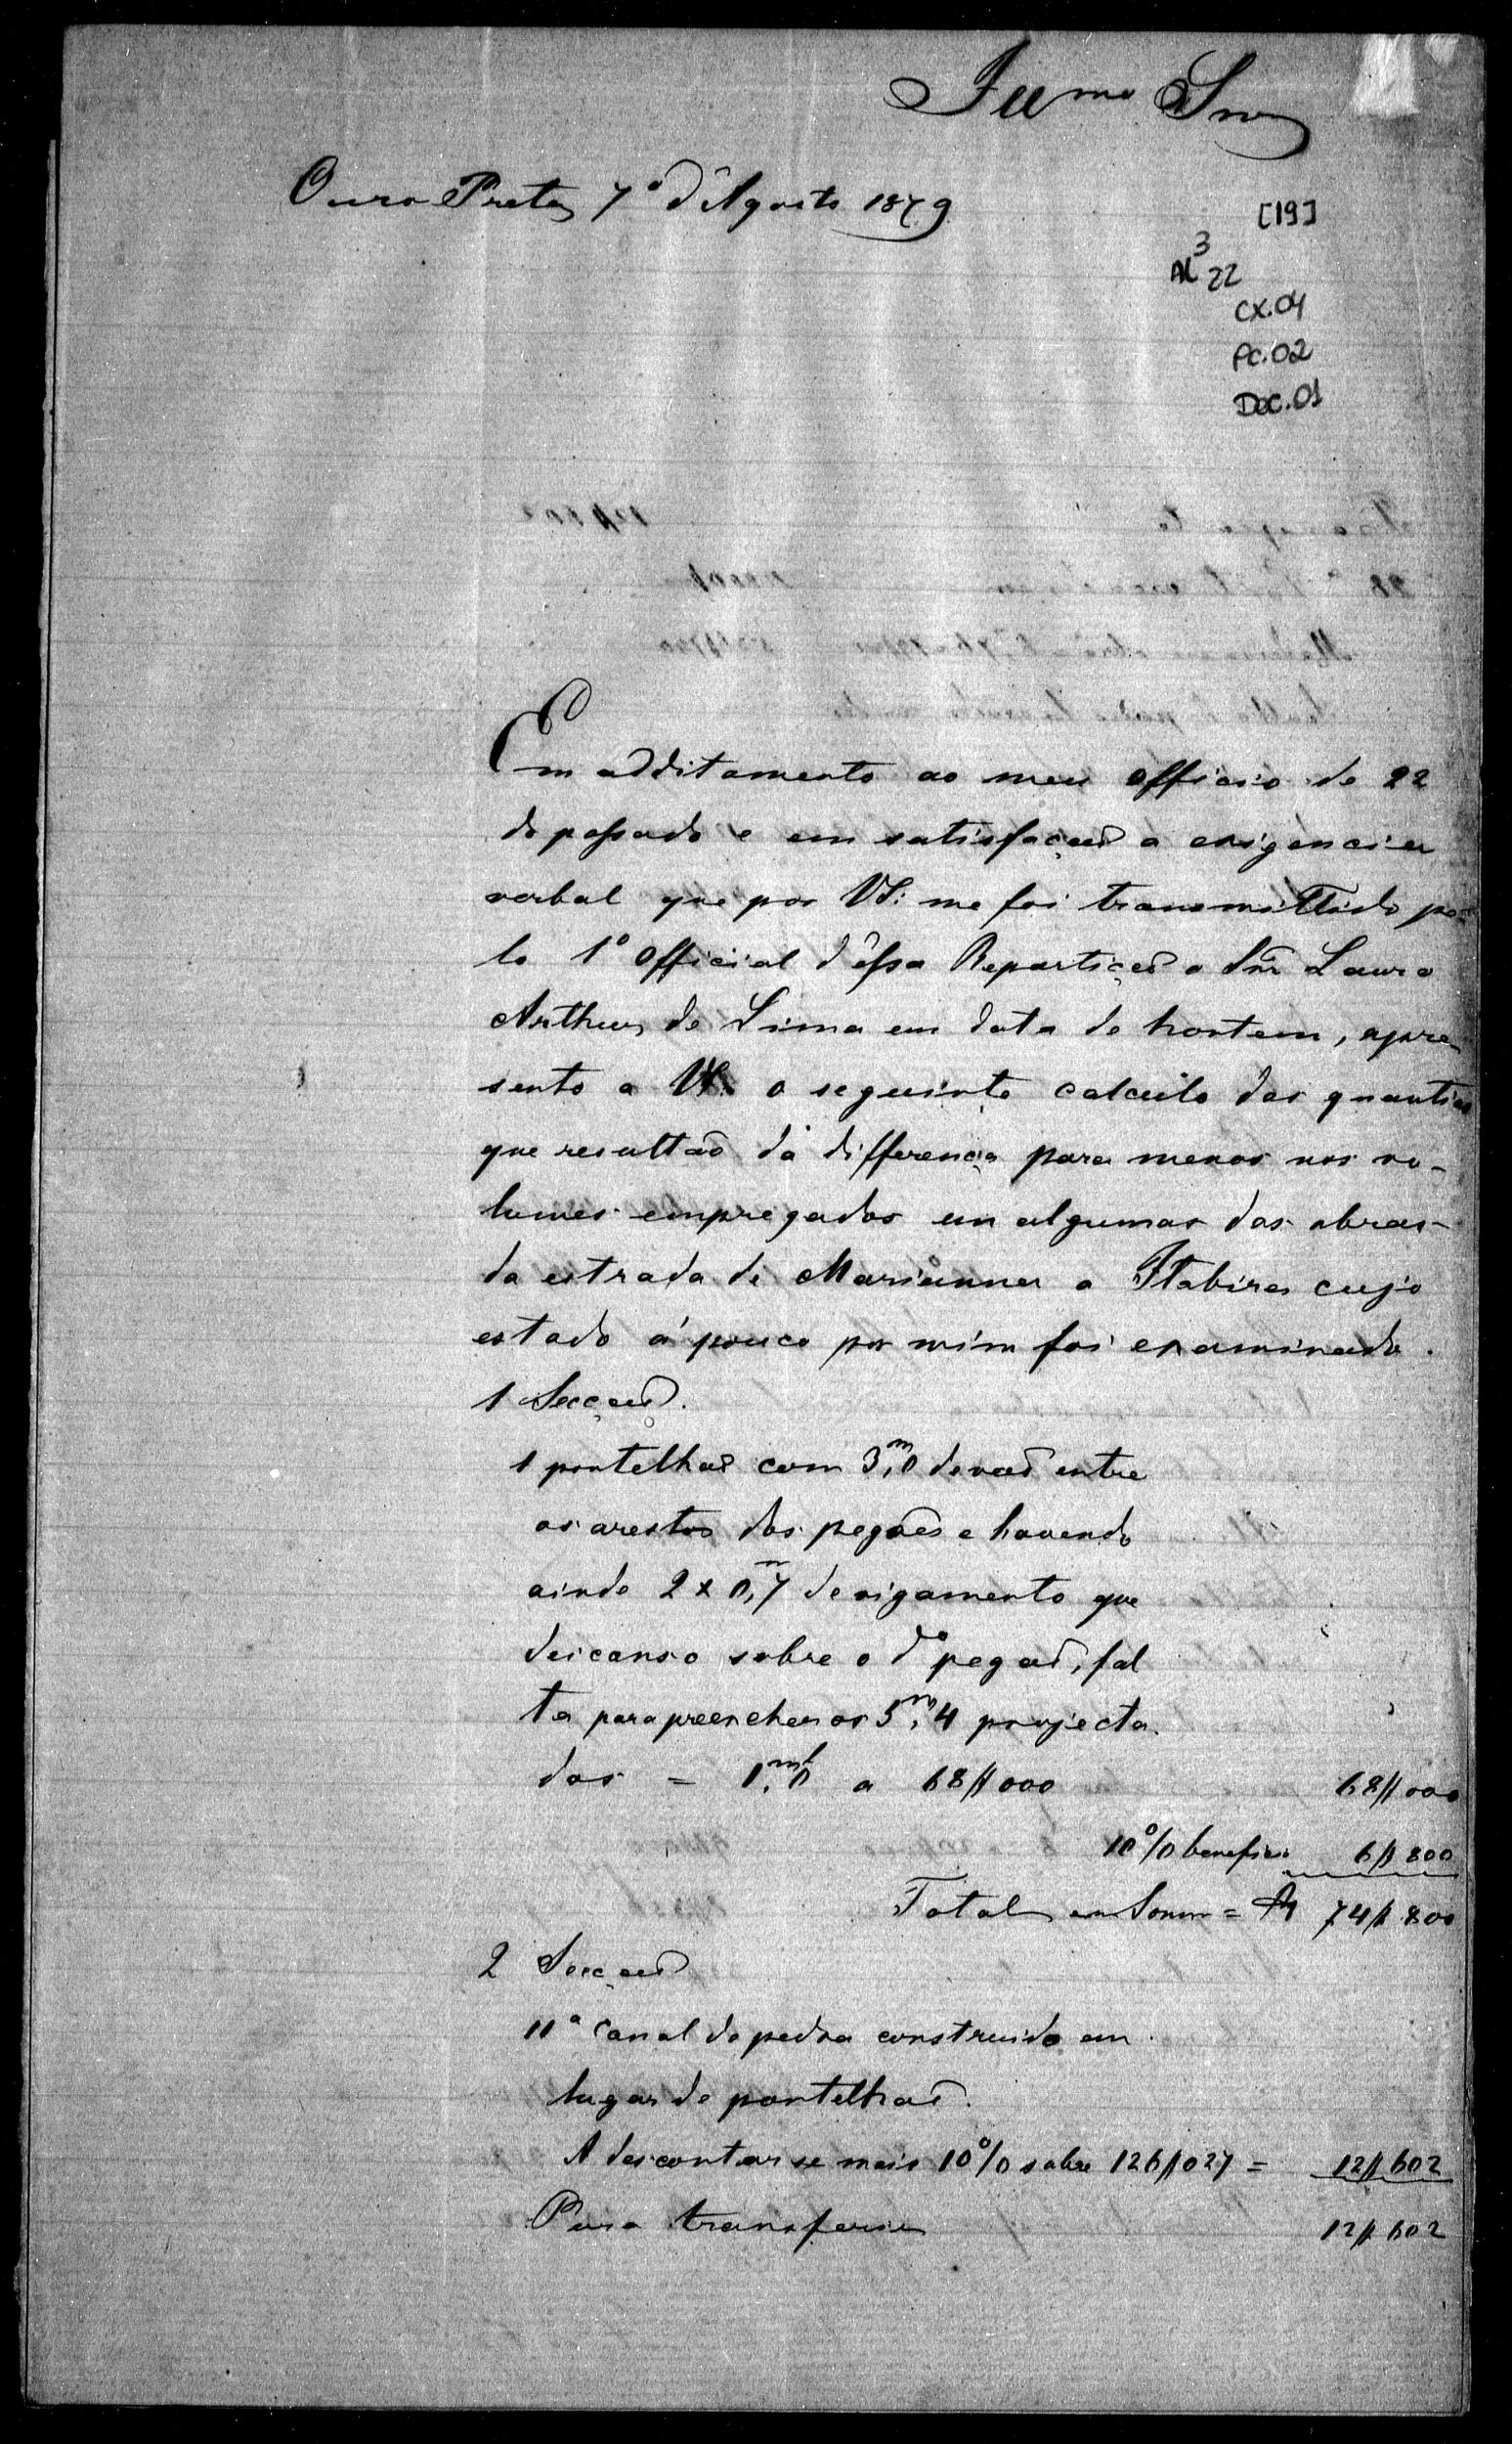 Illmo Snr
Ouro Preto 7º d'Agosto 1879
[19]
AL 3 22
CX.04
PC.02
Doc.01
Em additamento ao meu officio de 22
do passado e em satisfação a exigencia
verbal que por VS: me foi transmittido pe-
lo 1º Official d'essa Repartição o Snr Lauro
Arthur de Lima em data de hontem, apre-
sento a VS. o seguinte calculo das quantias
que resultão da differença para menos nos vo-
lumes empregados em algumas das obras
da estrada de Marianna a Itabira cujo
estado á pouco por mim foi examinado.
1 Secção.
1 pontelhão com 3,m0 de vão entre
as arestas dos pegões e havendo
ainda 2 x 0,m7 de vigamento que
descanso sobre o dº pegão, fal
ta para preencher os 5,m4 projecta.
dos = 1,ml0 a 68$000 68$000
10% beneficio 6$800
Total em Somma = Rs 74$800
2 Secção
11ª Canal de pedra construido em
lugar de pontelhão.
A descontar se mais 10% sobre 126$027 = 12$602
Para transferir 12$602